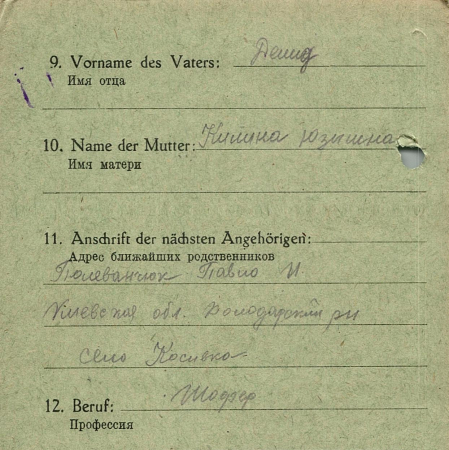 9. Vorname des Vaters: Демид
Имя отца
10. Name der Mutter:
Имя матери
11. Anschrift der nächsten Angehörigen:
Адрес ближайших родственников
Полеванчюк Павло И.
Киевская обл. Володарский рн
село Косивка
12. Beruf: Шофер
Профессия